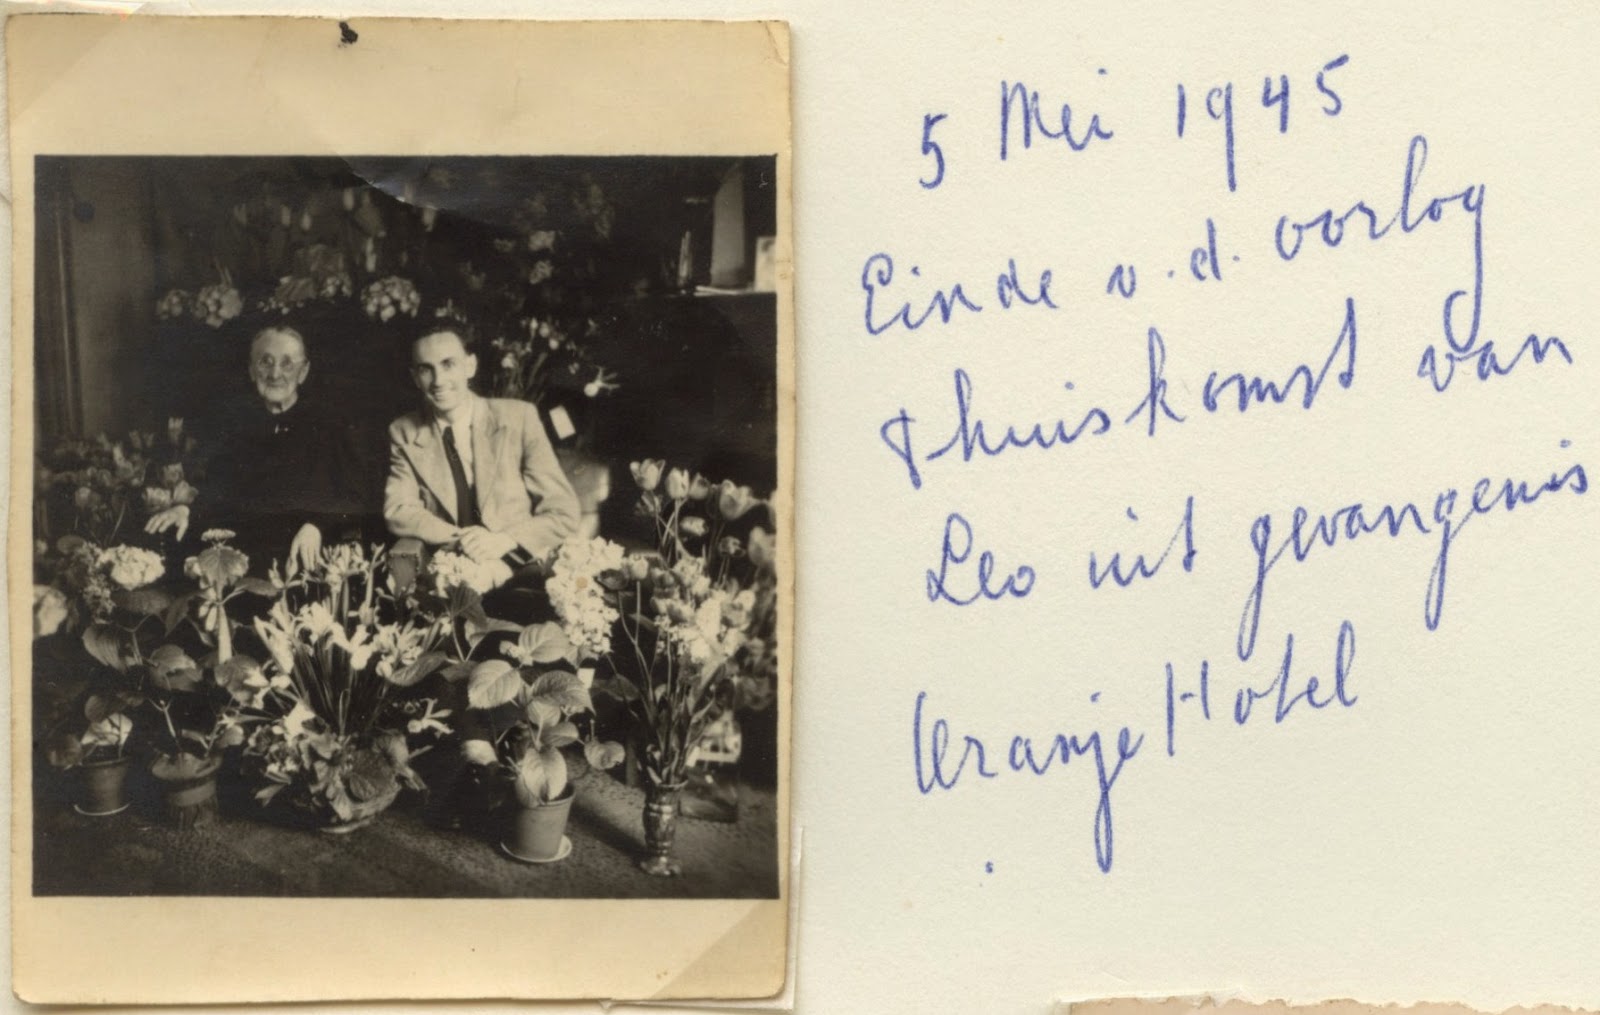 5 Mei 1945
Einde v.d. oorlog
+ thuiskomst van
Leo uit gevangenis
Oranje Hotel